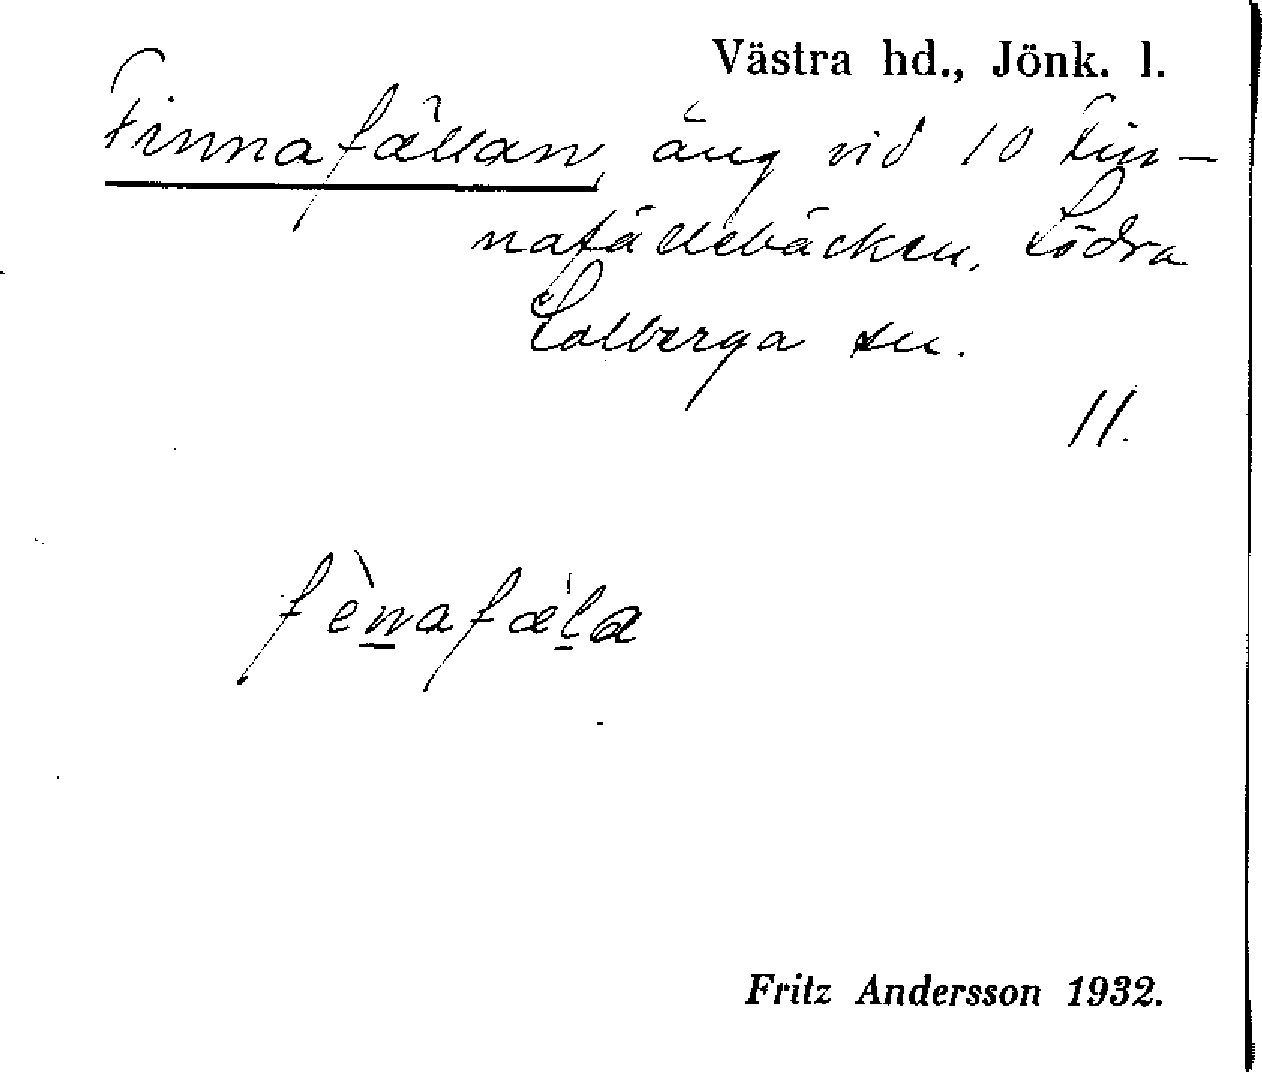 Västra hd., Jönk. l.
Finnafällan, äng vid 10 Fin-
nafällebäcken, Södra
Solberga sn.
11.
fènnafæ̍la
Fritz Andersson 1932.